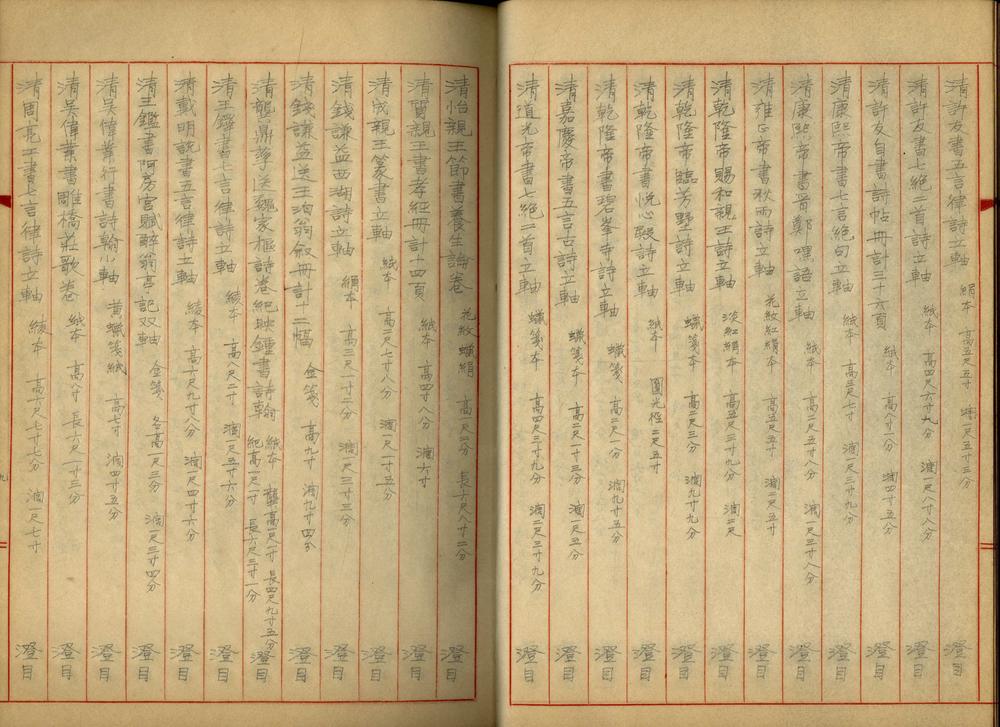 清許友書五言律詩立軸 絹本 高五尺五寸 濶一尺五寸三分 澄目
清許友書七絕二首詩立軸 紙本 高四尺六寸九分 濶一尺八寸八分 澄目
清許友自書詩帖冊計三十六頁 紙本 高八寸一分 濶四寸五分 澄目
清康熙帝書七言絕句立軸 紙本 高三尺七寸 濶一尺三寸九分 澄目
清康熙帝書晋鄭嘿語立軸 紙本 高二尺五寸八分 濶一尺三寸八分 澄目
清雍正帝書秋雨詩立軸 花紋紅絹本 高五尺五寸 濶二尺五寸 澄目
清乾隆帝賜和親王詩立軸 淡紅絹本 高五尺三寸九分 濶二尺 澄目
清乾隆帝臨芳野詩立軸 蠟箋本 高二尺三分 濶九寸九分 澄目
清乾隆帝書悅心殿詩立軸 紙本 圓光徑二尺五寸 澄目
清乾隆帝書碧峯寺詩立軸 蠟箋 高二尺一分 濶九寸五分 澄目
清嘉慶帝書五言古詩立軸 蠟箋本 高二尺一寸三分 濶一尺五分 澄目
清道光帝書七絕二首立軸 蠟箋本 高四尺三寸九分 濶二尺三寸九分 澄目
清怡親王節書養生論卷 花紋蠟絹 高一尺二分 長六尺八寸二分 澄目
清質親王書孝經冊計十四頁 紙本 高四寸八分 濶六寸 澄目
清成親王篆書立軸 紙本 高二尺七寸八分 濶一尺一寸五分 澄目
清錢謙益西湖詩立軸 絹本 高三尺一寸二分 濶一尺二寸三分 澄目
清錢謙益送王泊翁敘冊計十二幅 金箋 高九寸 濶九寸四分 澄目
清龔鼎孳送魏家樞詩卷紀映鍾書詩翰 紙本 龔高一尺一寸 長四尺九寸五分 紀高一尺一寸 長六尺三寸一分 澄目
清王鐸書七言律詩立軸 綾本 高八尺二寸 濶一尺五寸六分 澄目
清戴明說書五言律詩立軸 綾本 高六尺九寸八分 濶一尺四寸六分 澄目
清王鑑書阿房宮賦醉翁亭記双軸 金箋 各高一尺三分 濶一尺三寸四分 澄目
清吳偉業行書詩翰小軸 黃蠟箋紙 高七寸 濶四寸五分 澄目
清吳偉業書雕橋莊歌卷 紙本 高八寸 長六尺一寸三分 澄目
清周亮工書七言律詩立軸 綾本 高六尺七寸七分 濶一尺七寸 澄目
九